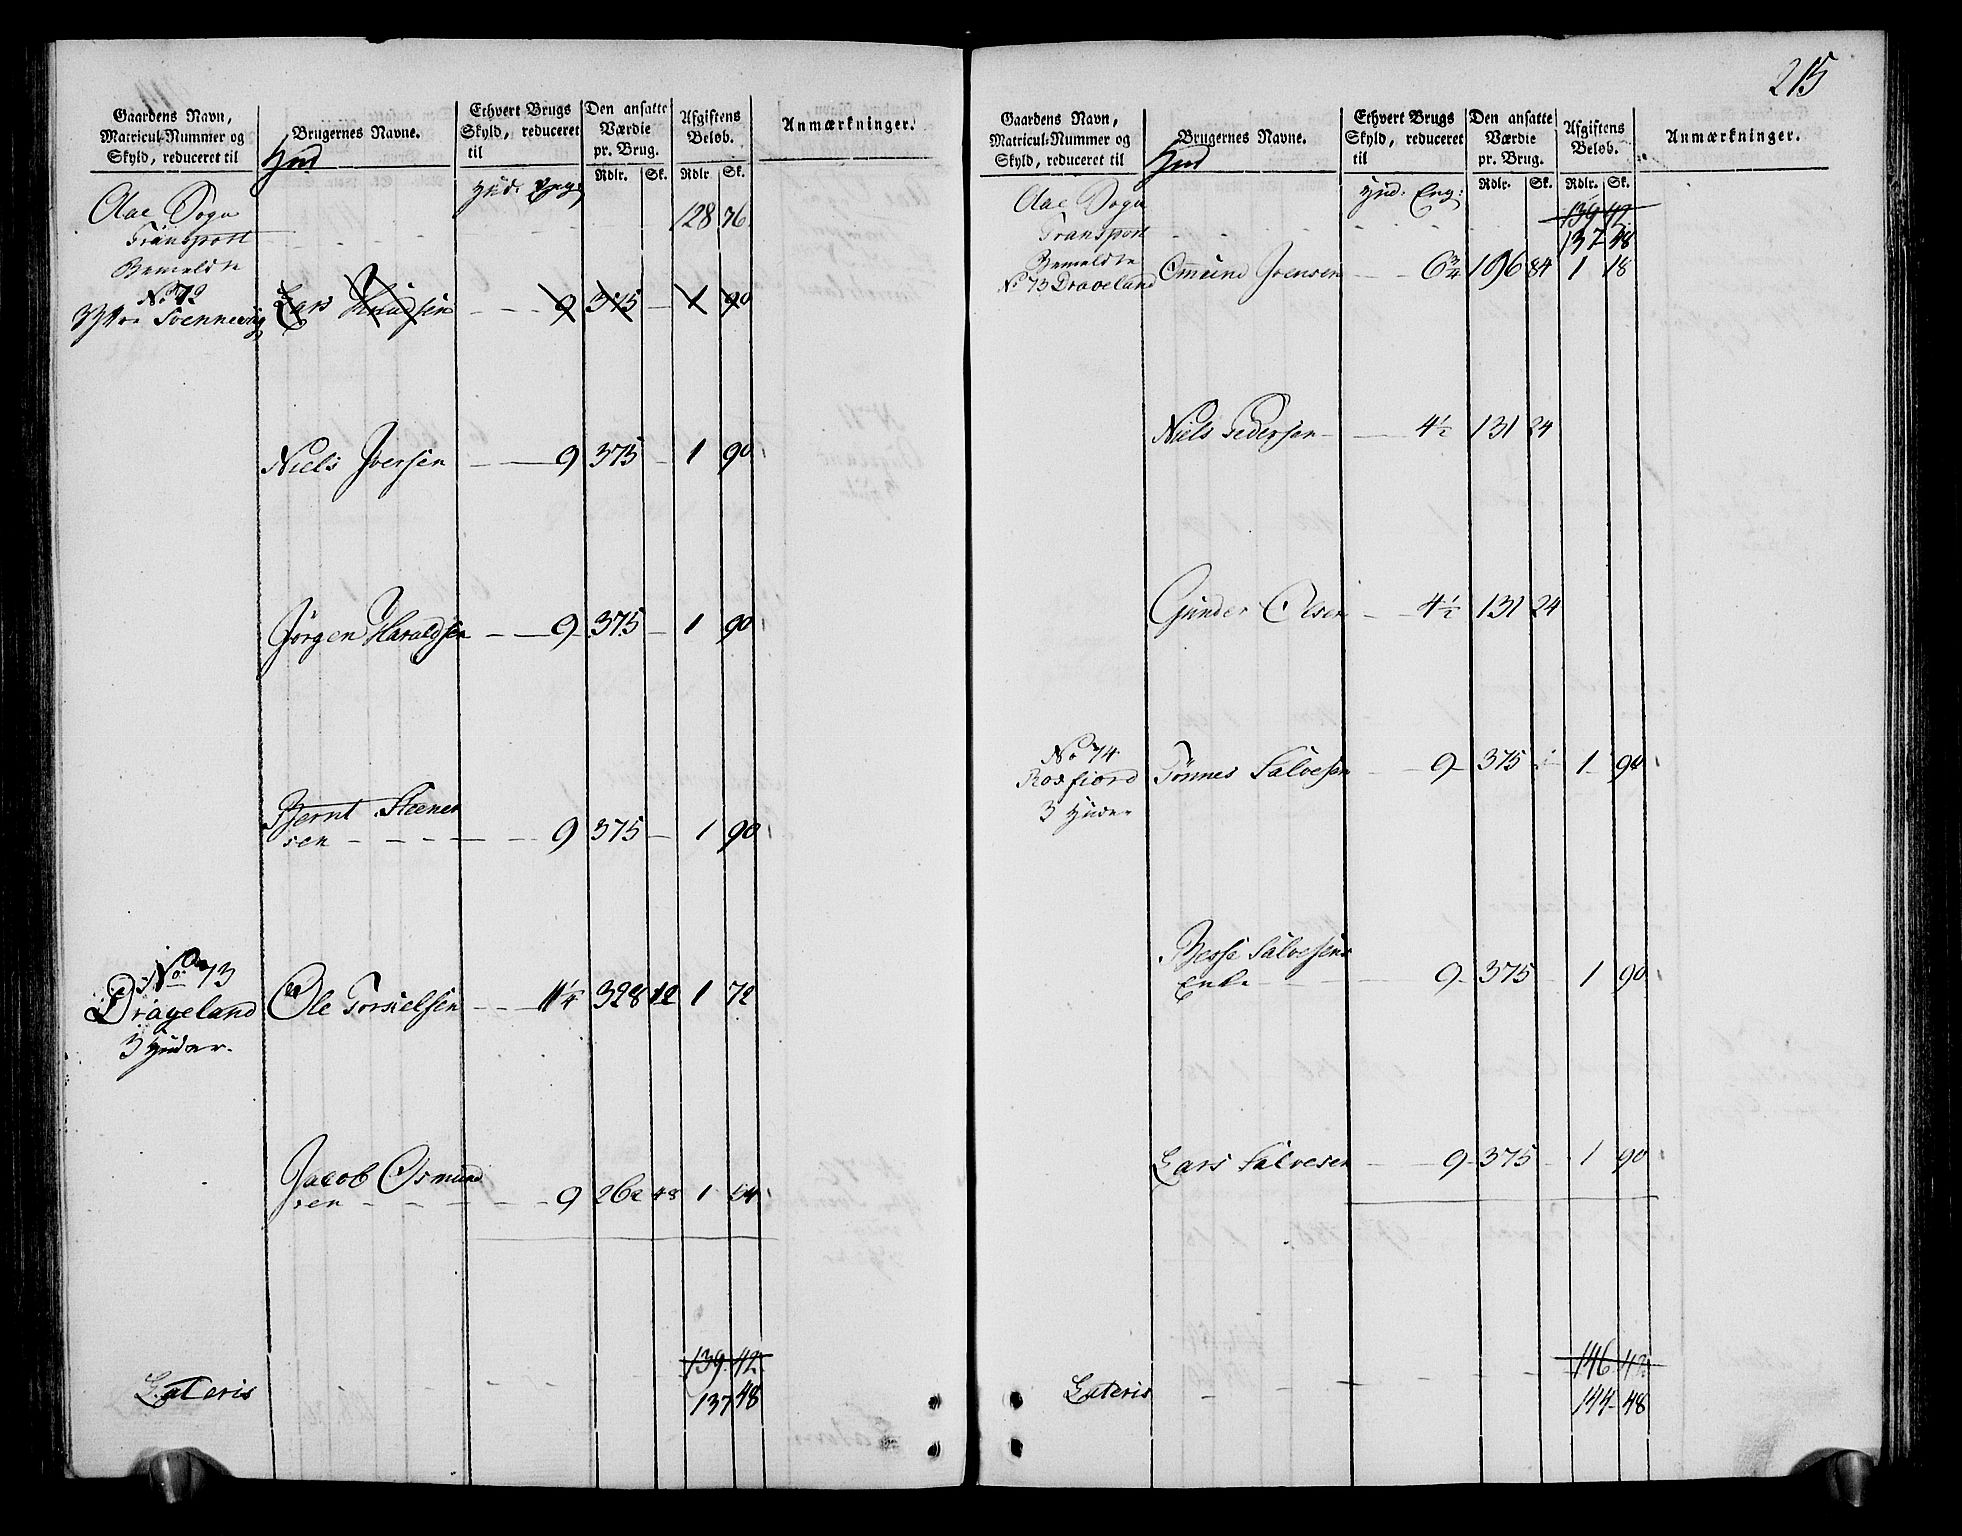 Gaardens Navn, Matricul-Nummer og Skyld, reduceret til
Brugernes Navne.
Ethvert Brugs Skyld, reduceret til
Den ansatte Værdie pr. Brug.
Afgiftens Beløb.
Anmærkninger.
Hud
Rdlr. Sk. Rdlr. Sk.
Hud. Eng:
Aae Sogn
Transport - - - 128 76
Bemeldte
No 72
Svennevig Lars Knudsen - - 9 375 - 1 90
Niels Iversen - - 9 375 - 1 90
Jørgen Haraldsen - - 9 375 - 1 90
Bernt Steener
sen - - - - 9 375 - 1 90
No 73
Drageland Ole Torkielsen - - 11 1/4 328 12 1 72
3 Huder.
Jacob Osmund
sen - - - - 9 262 48 1 54
139 42
Lateris - - - 137 48
215
Gaardens Navn, Matricul-Nummer og Skyld, reduceret til
Brugernes Navne.
Ethvert Brugs Skyld, reduceret til
Den ansatte Værdie pr. Brug.
Afgiftens Beløb.
Anmærkninger.
Hud
Rdlr. Sk. Rdlr. Sk.
Hud. Eng:
Aae Sogn 139 42
Transport - - - 137 48
Bemeldte
No 73 Drageland Omund Iversen - - 6 3/4 196 84 1 18
Niels Pedersen - - 4 1/2 131 24
Gunder Olsen - - 4 1/2 131 24
No 74
Rosfiord Tønnes Salvesen - 9 375 - 1 90
3 Huder
Salvesens
Enke - - - 9 375 - 1 90
Lars Salvesen - - 9 375 - 1 90
146 42
Lateris - - - 144 48